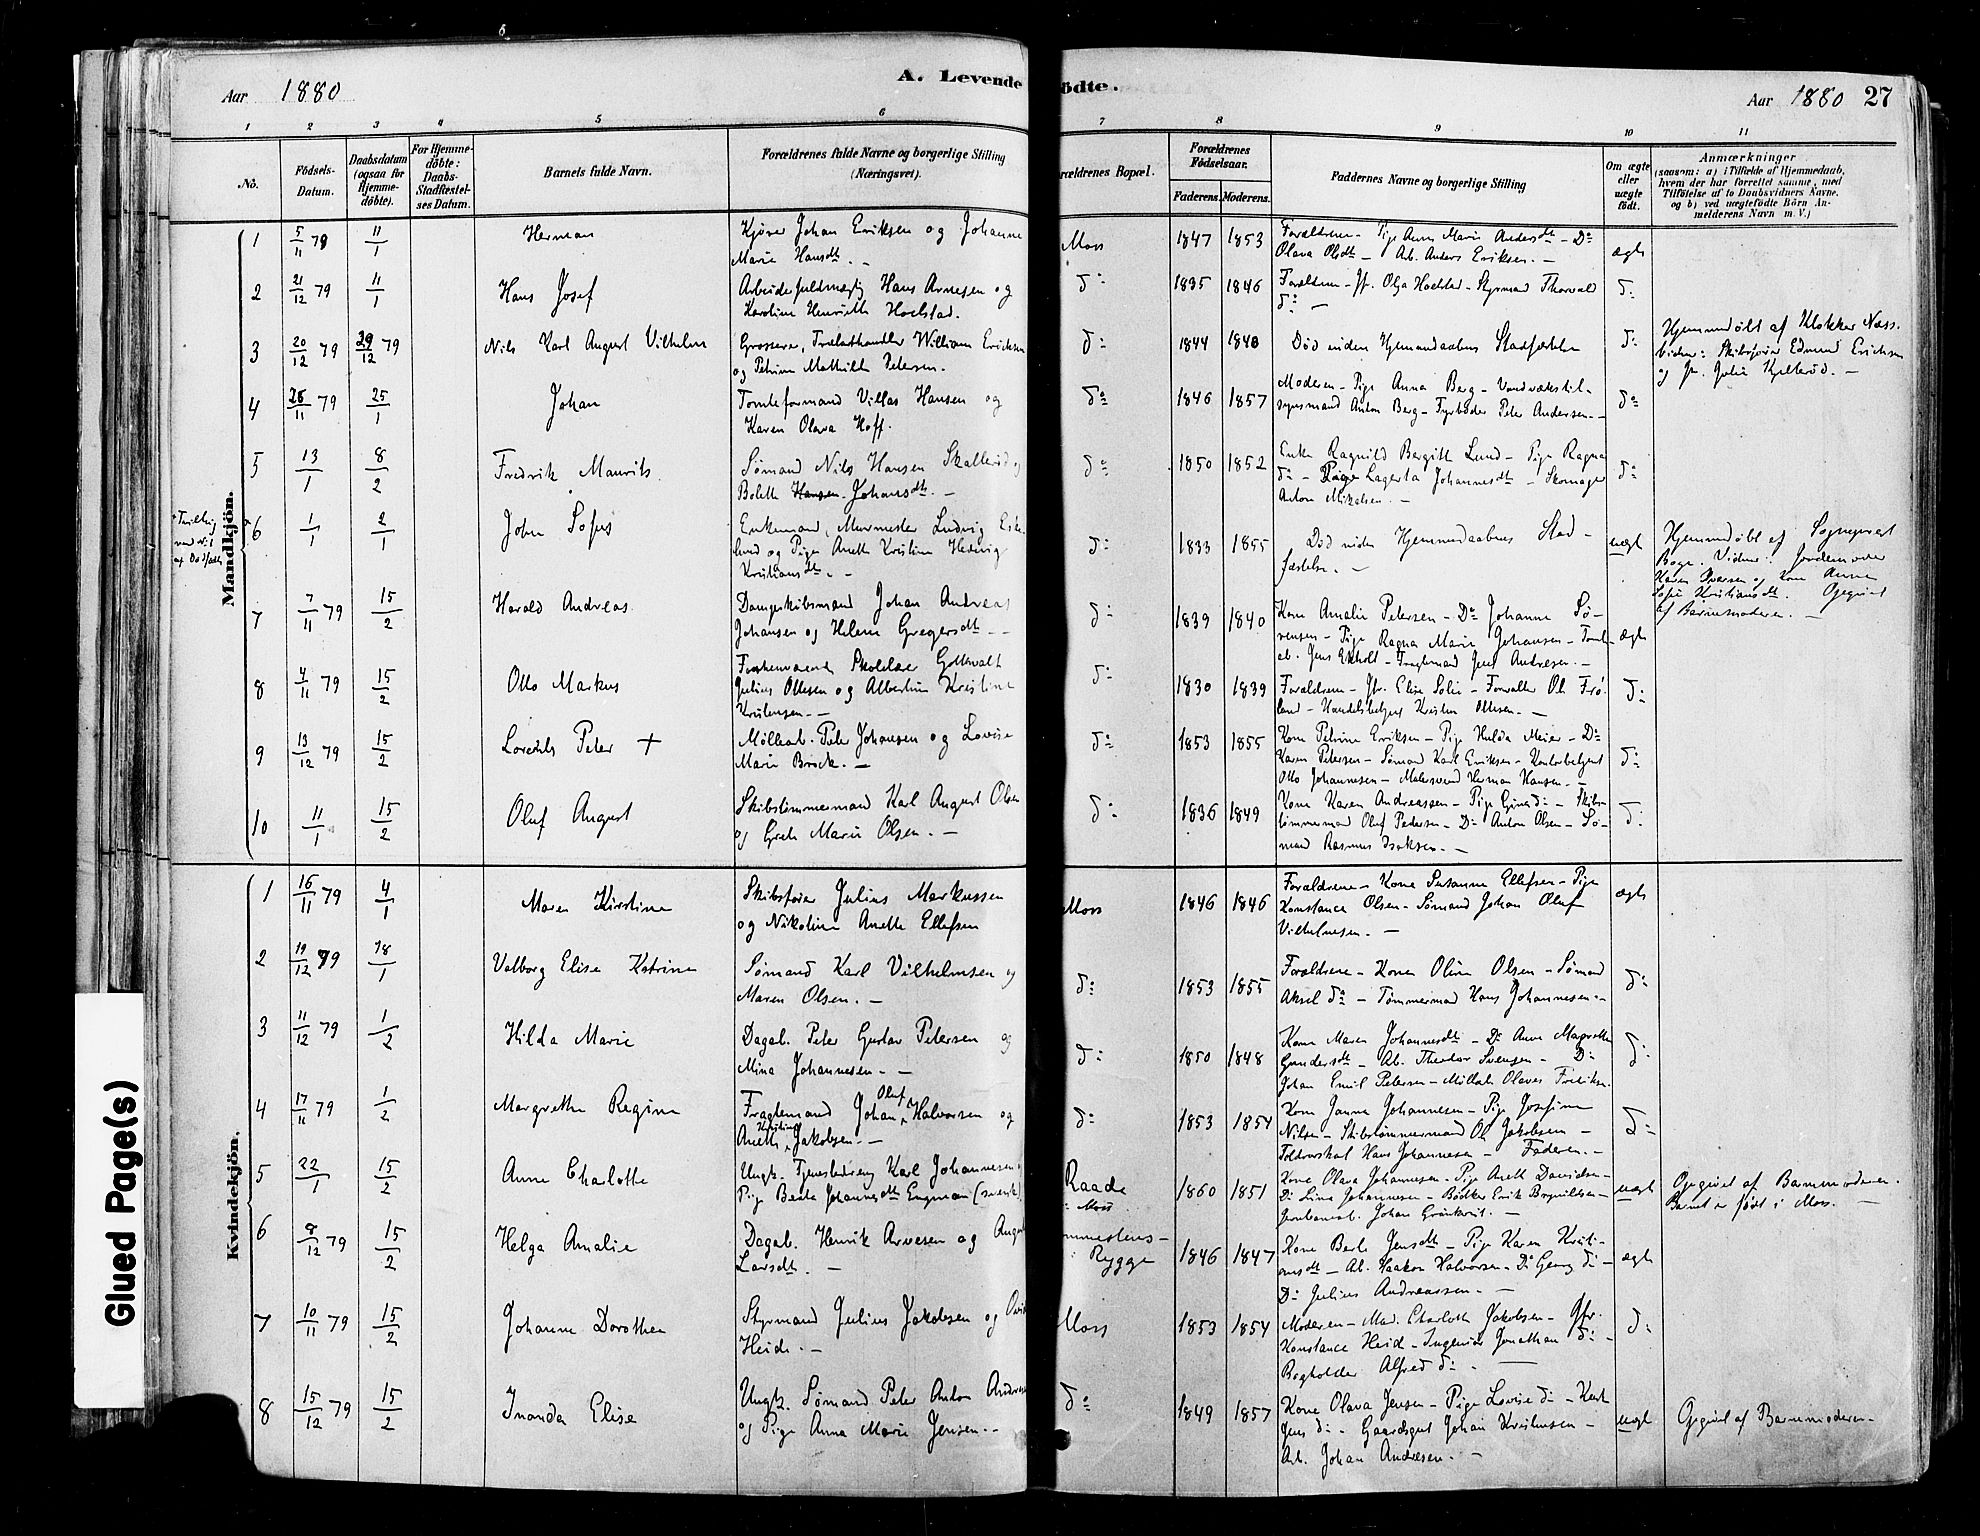 A. Levende
ødte.
Aar 1880
Aar 1880 27
1 2 3 4 5 6
7 8 9 10 11
No.
Födsels-Datum.
Daabsdatum (ogsaa for Hjemme-döbte).
For Hjemme-döbte: Daabs-Stadfæstel-ses Datum.
Barnets fulde Navn.
Forældrenes fulde Navne og borgerlige Stilling (Næringsvei).
rældrenes Bopæl.
Forældrenes Födselsaar.
Faderens. Moderens.
Faddernes Navne og borgerlige Stilling
Om ægte eller uægte födt.
Anmærkninger
(saasom: a) i Tilfælde af Hjemmedaab,
hvem der har forrettet samme, med
Tilföielse af to Daabsvidners Navne.
og b) ved uægtefödte Börn An-
melderens Navn m. V.)
Mandkjön.
1 5/11 79 11/1 Herman
Kjører Johan Eriksen og Johanne
Marie Hansdt. –
Moss 1847 1853
Forældrene – Pige Anne Marie Andersdt – Do
Olava Olsdt – Arb. Anders Eriksen. –
ægte
2 21/12 79 11/1 Hans Josef
Arbeiderfuldmægtig Hans Arnesen og
Karoline Henriette Hoelstad.
do 1835 1846
Forældrene – Jfr. Olga Hoelstad – Styrmand Thorvald
do –
do
3 20/12 79 29/12 79 Nils Karl August Vilhelm
Grosserer, Trælasthandler William Erichsen
og Petrine Mathilde Petersen.
do 1844 1840
Død inden Hjemmedaabens Stadfæstelse
do
Hjemmedøbt af Klokker Næss.
Vidner: Skibsfører Edmund Erichsen
og Jfr. Julie Kjellerød. –
4 26/11 79 25/1 Johan
Tomteformand Villas Hansen og
Karen Olava Hoff.
do 1846 1857
Moderen – Pige Anna Berg – Vandværkstil-
synsmand Anton Berg – Fyrbøder Peter Andersen. –
do
5 13/1 8/2 Fredrik Maurits
Sømand Nils Hansen Skallerød og
Bolette Hansen Johansdt. –
do 1850 1852
Enke Ragnild Bergitte Lund – Pige Ragna
do – Pige Lagerta Johannesdt – Skomager
Anton Mikelsen. –
do
6 1/1 2/1 John Sofus
Enkemand, Murmester Ludvig Eske-
lund og Pige Anette Kristine Hedevig
Kristiansdt. –
do 1833 1855
Død inden Hjemmedaabens Stad-
fæstelse. –
uægte
Hjemmedøbt af Sogneprest
Boye. Vidner: Jordemoder
Karen Iversen og Kone Anne
Sofie Kristiansdt. Opgivet
af Barnemoderen. –
7 7/11 79 15/2 Harald Andreas
Dampskibsmand Johan Andreas
Johansen og Helene Gregersdt –
do 1839 1840
Kone Amalie Petersen – Do Johanne Sø-
rensen – Pige Ragna Marie Johansen – Tomte
arb. Jens Ekholt – Fragtemand Jens Andresen. –
ægte
8 4/11 79 15/2 Otto Markus
Julius Ottesen og Albertine Kristine
Kristensen. –
do 1830 1839
Forældrene – Jfr. Elise Solie – Forvalter Ol. Frø-
land – Handelsbetjent Kristen Ottesen. –
do
9 13/12 79 15/2 Lorents Peter +
Møllearb. Peter Johansen og Lovise
Marie Brock. –
do 1853 1855
Kone Petrine Eriksen – Pige Hulda Meier – Do
Karen Petersen – Sømand Karl Eriksen – Kontorbetjent
Otto Johannesen – Malersvend Herman Hansen. –
do
10 11/1 15/2 Oluf August
Skibstømmermand Karl August Olsen
og Grete Marie Olsen. –
do 1836 1849
Kone Karen Andreassen – Pige Gina do – Skibs-
tømmermand Oluf Pedersen – Do Anton Olsen – Sø-
mand Rasmus Isaksen. –
do
Kvindekjön.
1 16/11 79 4/1 Maren Kirstine
Skibsfører Julius Markussen
og Nikoline Anette Ellefsen
Moss 1846 1846
Forældrene – Kone Susanne Ellefsen – Pige
Konstance Olsen – Sømand Johan Oluf
Vilhelmsen. –
ægte
2 19/12 79 18/1 Valborg Elise Katrine
Sømand Karl Vilhelmsen og
Maren Olsen. –
do 1853 1855
Forældrene – Kone Oline Olsen – Sømand
Aksel do – Tømmermand Hans Johannesen. –
do
3 11/12 79 1/2 Hilda Marie
Dagarb. Peter Gustav Petersen og
Mina Johannesen. –
do 1850 1848
Kone Maren Johannesdt – Do Anne Margrethe
Gundersdt – Arb. Theodor Svensen – Do
Johan Emil Petersen – Møllearb. Olaves Fredriksen
do
4 17/11 79 1/2 Margrethe Regine
Fragtemand Johan Oluf Halvorsen og
Anette Kristine Jakobsen. –
do 1853 1854
Kone Janna Johannesen – Pige Josefine
Nilsen – Skibstømmermand Ol. Jakobsen –
Hans Johannesen – Faderen. –
do
5 22/1 15/2 Anne Charlotte
Ungk. Tjenestedreng Karl Johannesen
Pige Beate Johannesdt Engman (svensk)
Raade
Moss
1860 1851
Kone Olava Johannesen – Pige Anette Davidsen –
Do Lina Johannesen – Bødker Erik Bryнildsen –
Jernbanearb. Johan Grönkvist. –
uægte
Opgivet af Barnemoderen.
Barnet er født i Moss. –
6 8/12 79 15/2 Helga Amalie
Dagarb. Henrik Arvesen og August
Larsdt. –
Rygge
1846 1847
Kone Berte Jensdt – Pige Karen Kristi-
ansdt – Arb. Haakon Halvorsen – Do Georg do –
Do Julius Andreassen. –
ægte
7 10/11 79 15/2 Johanne Dorothea
Styrmand Julius Jakobsen og
Heide. –
Moss 1853 1854
Moderen – Mad. Charlotte Jakobsen – Jfr.
Konstance Heid – Ingeniør Jonathan do –
Bogholder Alfred do. –
do
8 15/12 79 15/2 Inanda Elise
Ungk. Sømand Peter Anton Andre
og Pige Anna Marie Jensen. –
do 1849 1857
Kone Olava Jensen – Pige Lovise do –
Jens do – Gaardsgut Johan Kristensen –
Arb. Johan Andresen. –
uægte
Opgivet af Barnemoderen –
Glued Page(s)